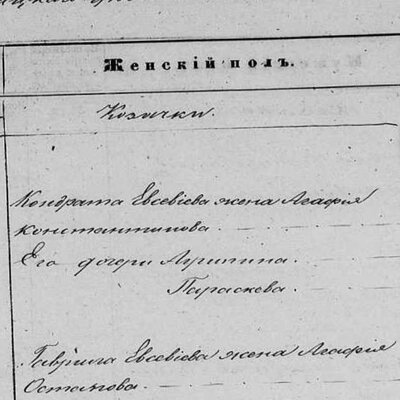 Женскій полъ.
Козачки.
Кондрата Евсевіева жена Агафія
Константинова.
Его дочери Агрипина.
Параскева.
Гаврила Евсевіева жена Агафія
Остапова.